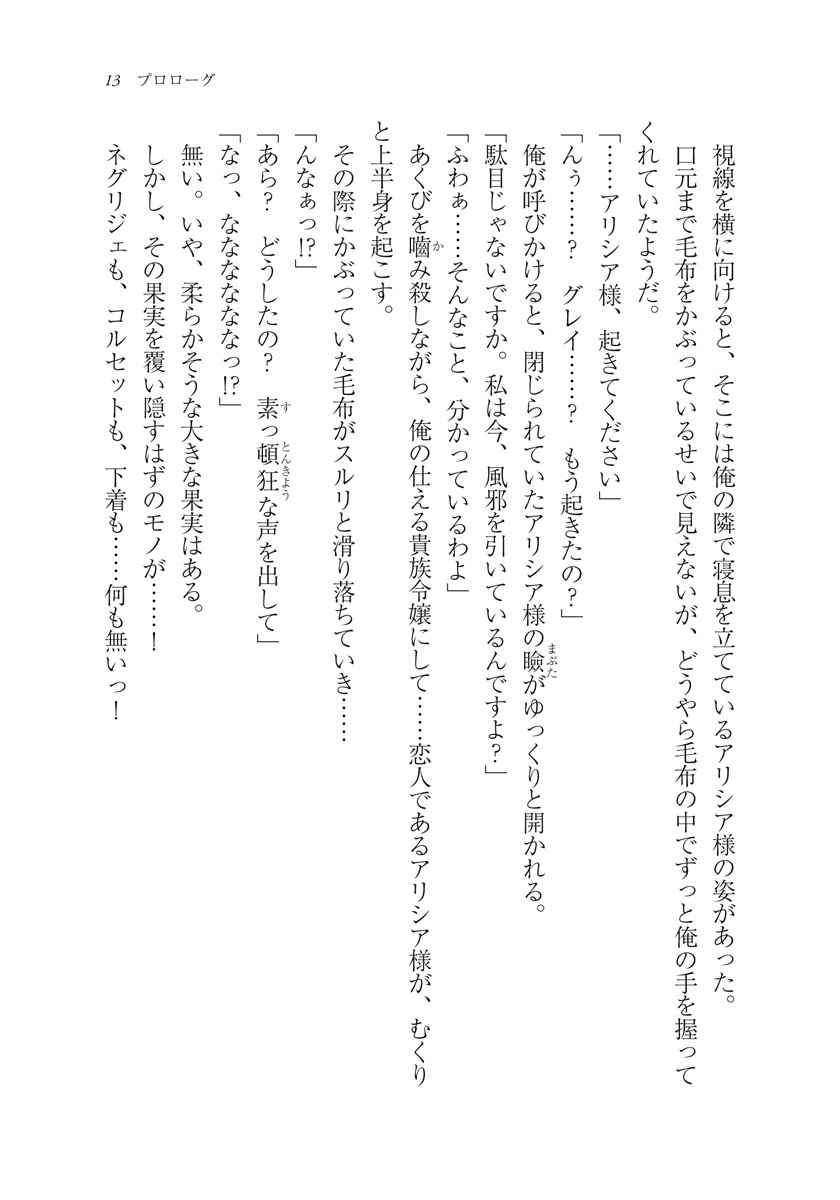 13　プロローグ
視線を横に向けると、そこには俺の隣で寝息を立てているアリシア様の姿があった。
口元まで毛布をかぶっているせいで見えないが、どうやら毛布の中でずっと俺の手を握って
くれていたようだ。
「……アリシア様、起きてください」
「んぅ……？　グレイ……？　もう起きたの？」
俺が呼びかけると、閉じられていたアリシア様の瞼がゆっくりと開かれる。
「駄目じゃないですか。私は今、風邪を引いているんですよ？」
「ふわぁ……そんなこと、分かっているわよ」
あくびを嚙み殺しながら、俺の仕える貴族令嬢にして……恋人であるアリシア様が、むくり
と上半身を起こす。
その際にかぶっていた毛布がスルリと滑り落ちていき……
「んなぁっ!?」
「あら？　どうしたの？　素っ頓狂な声を出して」
「なっ、なななななっ!?」
無い。いや、柔らかそうな大きな果実はある。
しかし、その果実を覆い隠すはずのモノが……！
ネグリジェも、コルセットも、下着も……何も無いっ！